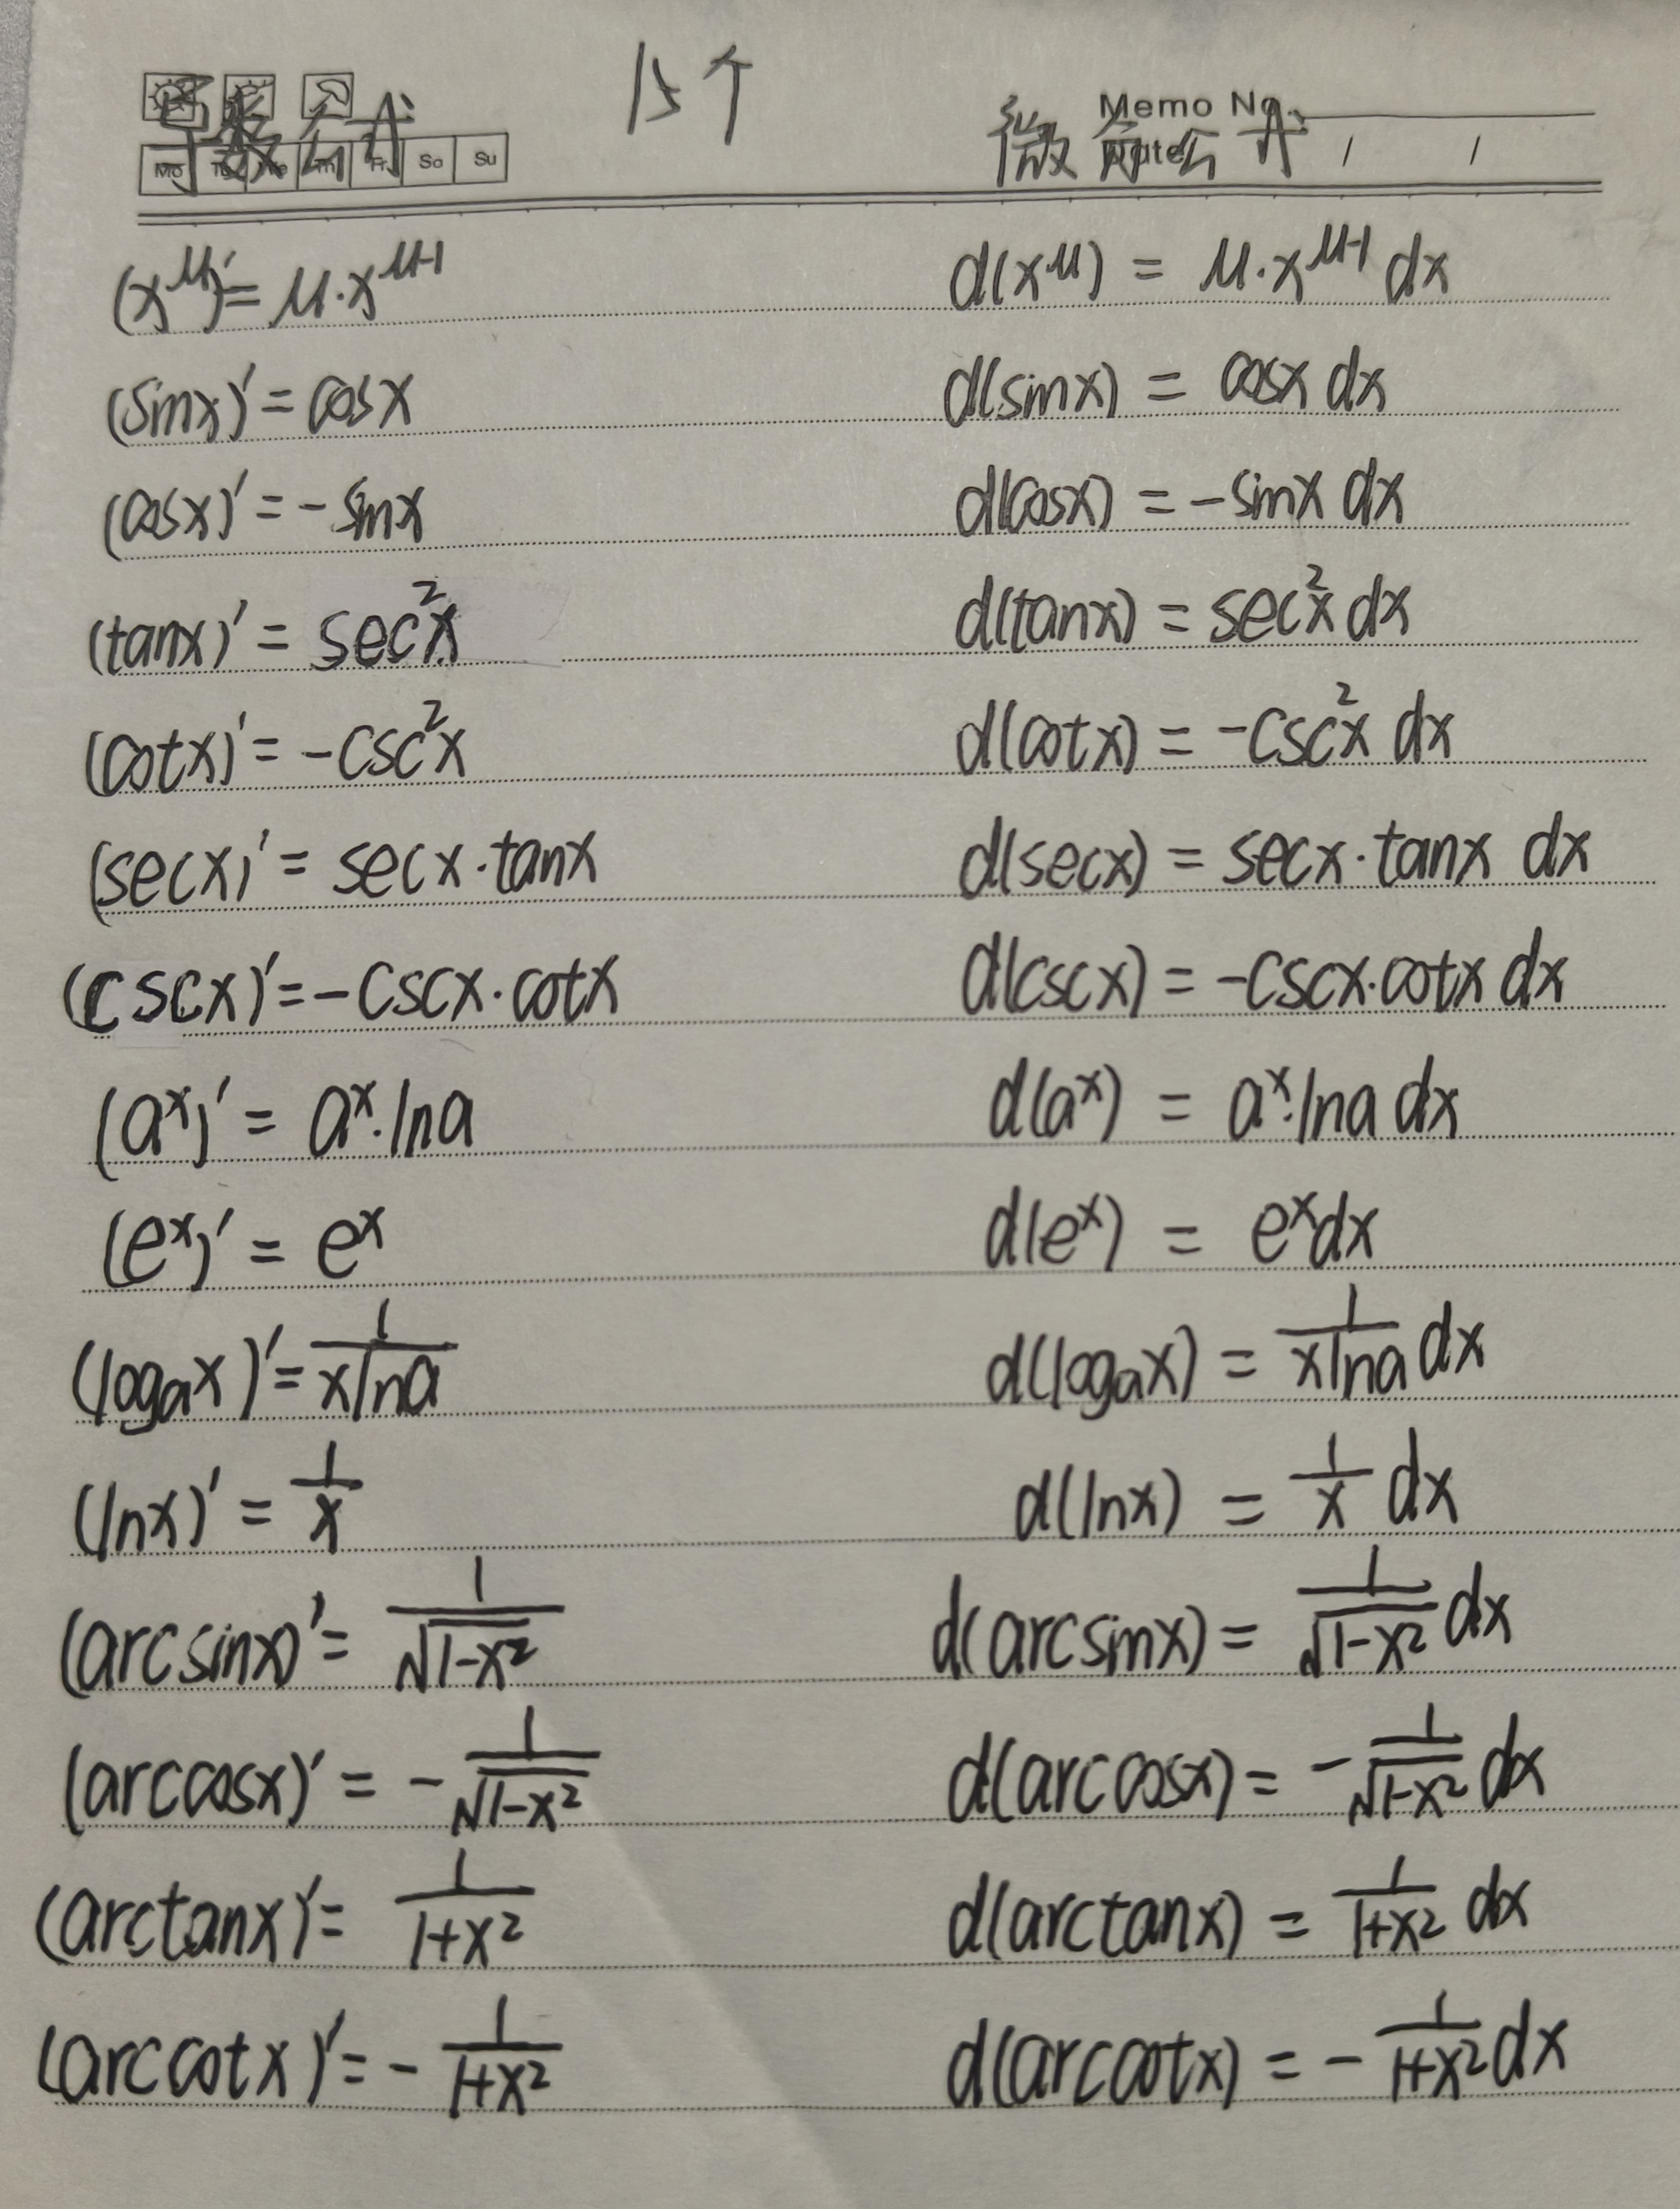 导数公式 15个 微分公式
Memo No.
Mo Tu We Th Fr Sa Su Date / /
(x^μ)' = μ·x^(μ-1) d(x^μ) = μ·x^(μ-1) dx
(sinx)' = cosx d(sinx) = cosx dx
(cosx)' = -sinx d(cosx) = -sinx dx
(tanx)' = sec²x d(tanx) = sec²x dx
(cotx)' = -csc²x d(cotx) = -csc²x dx
(secx)' = secx·tanx d(secx) = secx·tanx dx
(cscx)' = -cscx·cotx d(cscx) = -cscx·cotx dx
(a^x)' = a^x·lna d(a^x) = a^x·lna dx
(e^x)' = e^x d(e^x) = e^x dx
(logₐx)' = 1/(xlna) d(logₐx) = 1/(xlna) dx
(lnx)' = 1/x d(lnx) = 1/x dx
(arcsinx)' = 1/√(1-x²) d(arcsinx) = 1/√(1-x²) dx
(arccosx)' = -1/√(1-x²) d(arccosx) = -1/√(1-x²) dx
(arctanx)' = 1/(1+x²) d(arctanx) = 1/(1+x²) dx
(arccotx)' = -1/(1+x²) d(arccotx) = -1/(1+x²) dx